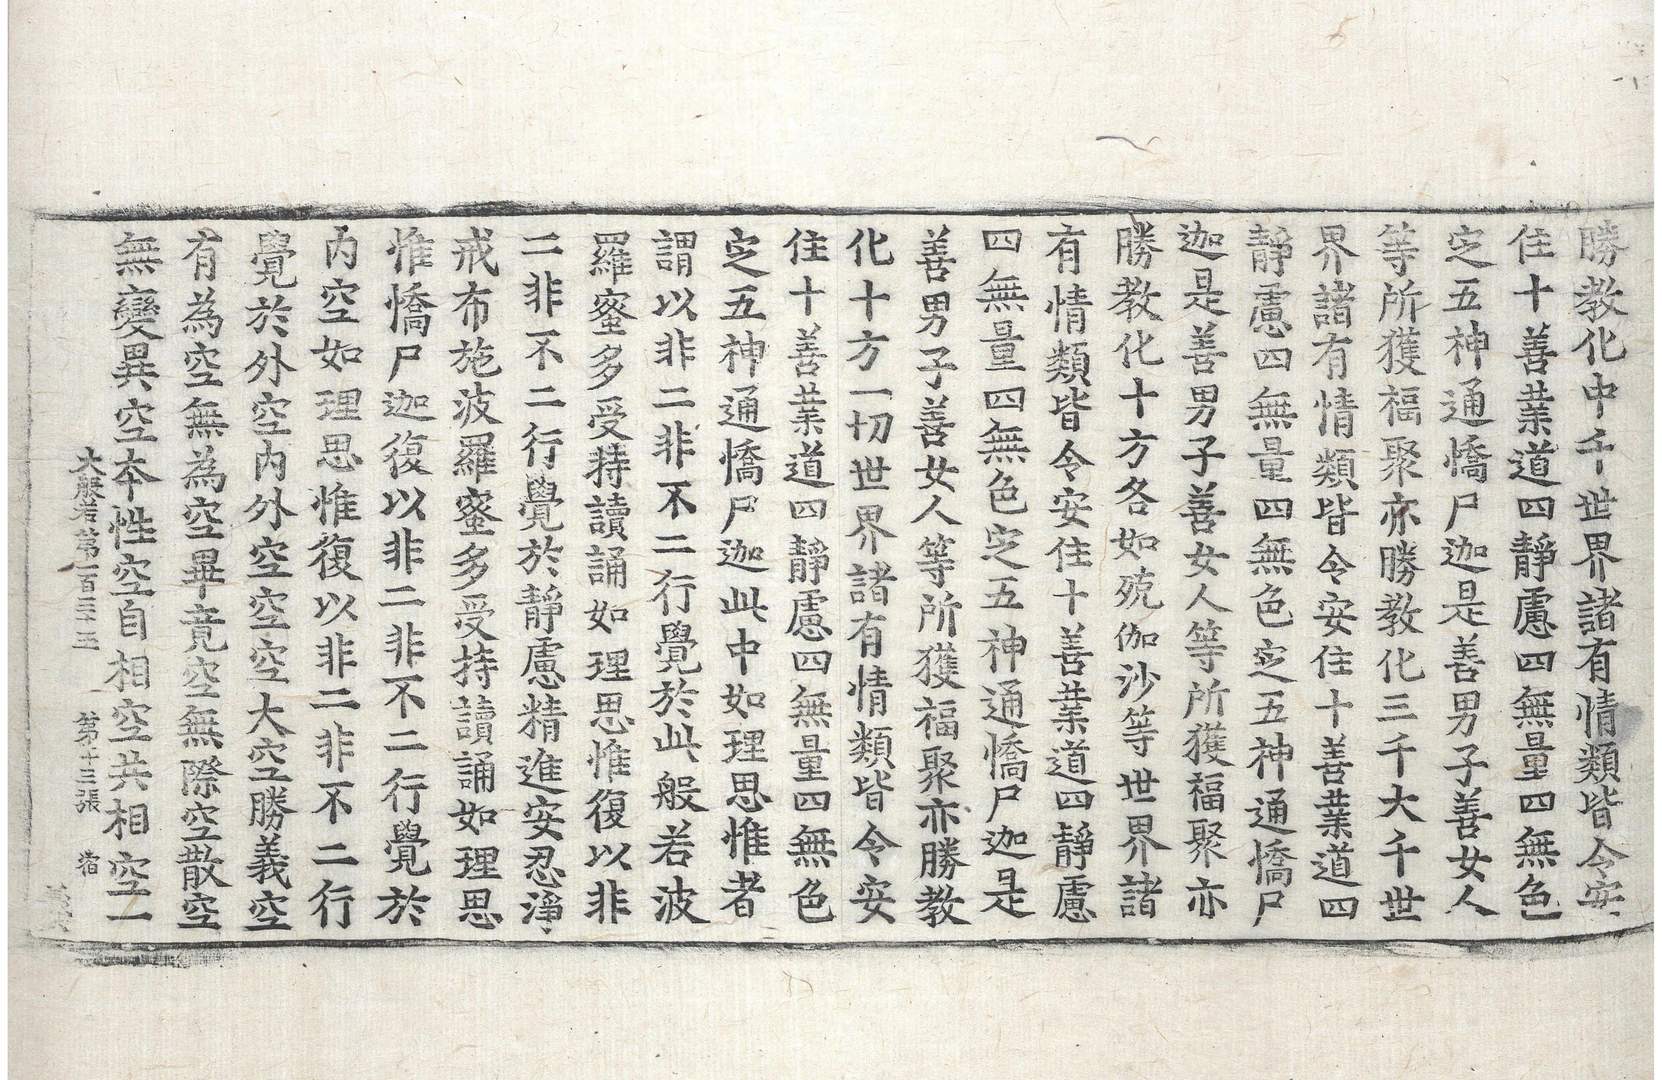 勝教化中千世界諸有情類皆令安
住十善業道四靜慮四無量四無色
定五神通憍尸迦是善男子善女人
等所獲福聚亦勝教化三千大千世
界諸有情類皆令安住十善業道四
靜慮四無量四無色定五神通憍尸
迦是善男子善女人等所獲福聚亦
勝教化十方各如殑伽沙等世界諸
有情類皆令安住十善業道四靜慮
四無量四無色定五神通憍尸迦是
善男子善女人等所獲福聚亦勝教
化十方一切世界諸有情類皆令安
住十善業道四靜慮四無量四無色
定五神通憍尸迦此中如理思惟者
謂以非二非不二行覺於此般若波
羅蜜多受持讀誦如理思惟復以非
二非不二行覺於靜慮精進安忍淨
戒布施波羅蜜多受持讀誦如理思
惟憍尸迦復以非二非不二行覺於
內空如理思惟復以非二非不二行
覺於外空內外空空空大空勝義空
有為空無為空畢竟空無際空散空
無變異空本性空自相空共相空一
大般若第一百三十三 第十三張 宿